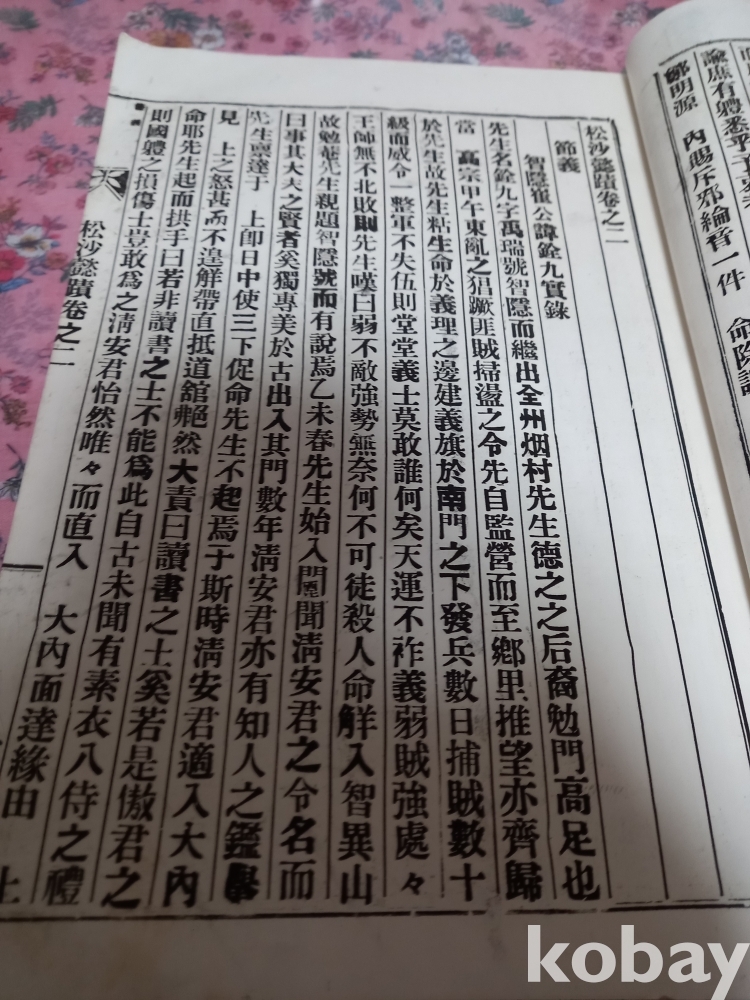 論應有禮悉
鄭明源 內賜斥邪綸音一件 命
松沙懿蹟卷之二
節義
智隱崔公諱銓九實錄
先生名銓九字禹瑞號智隱而繼出全州烟村先生德之之后裔勉門高足也
當 高宗甲午東亂之猖蹶匪賊掃盪之令先自監營而至鄕里推望亦齊歸
於先生故先生粘生命於義理之邊建義旗於南門之下發兵數日捕賊數十
級而威令一整軍不失伍則堂堂義士莫敢誰何矣天運不祚義弱賊強處々
王師無不北敗則先生嘆曰弱不敵強勢無奈何不可徒殺人命解入智異山
故勉菴先生親題智隱號而有說焉乙未春先生始入聞淸安君之令名而
曰事其大夫之賢者奚獨專美於古出入其門數年淸安君亦有知人之鑑擧
先生禀達于 上卽日中使三下促命先生不起焉于斯時淸安君適入大內
見 上之怒甚而不遑解帶直抵道舘艴然大責曰讀書之士奚若是傲君之
命耶先生起而拱手曰若非讀書之士不能爲此自古未聞有素衣入侍之禮
則國軆之損傷士豈敢爲之淸安君怡然唯々而直入 大內面達緣由 上
松沙懿蹟卷之二
kobay